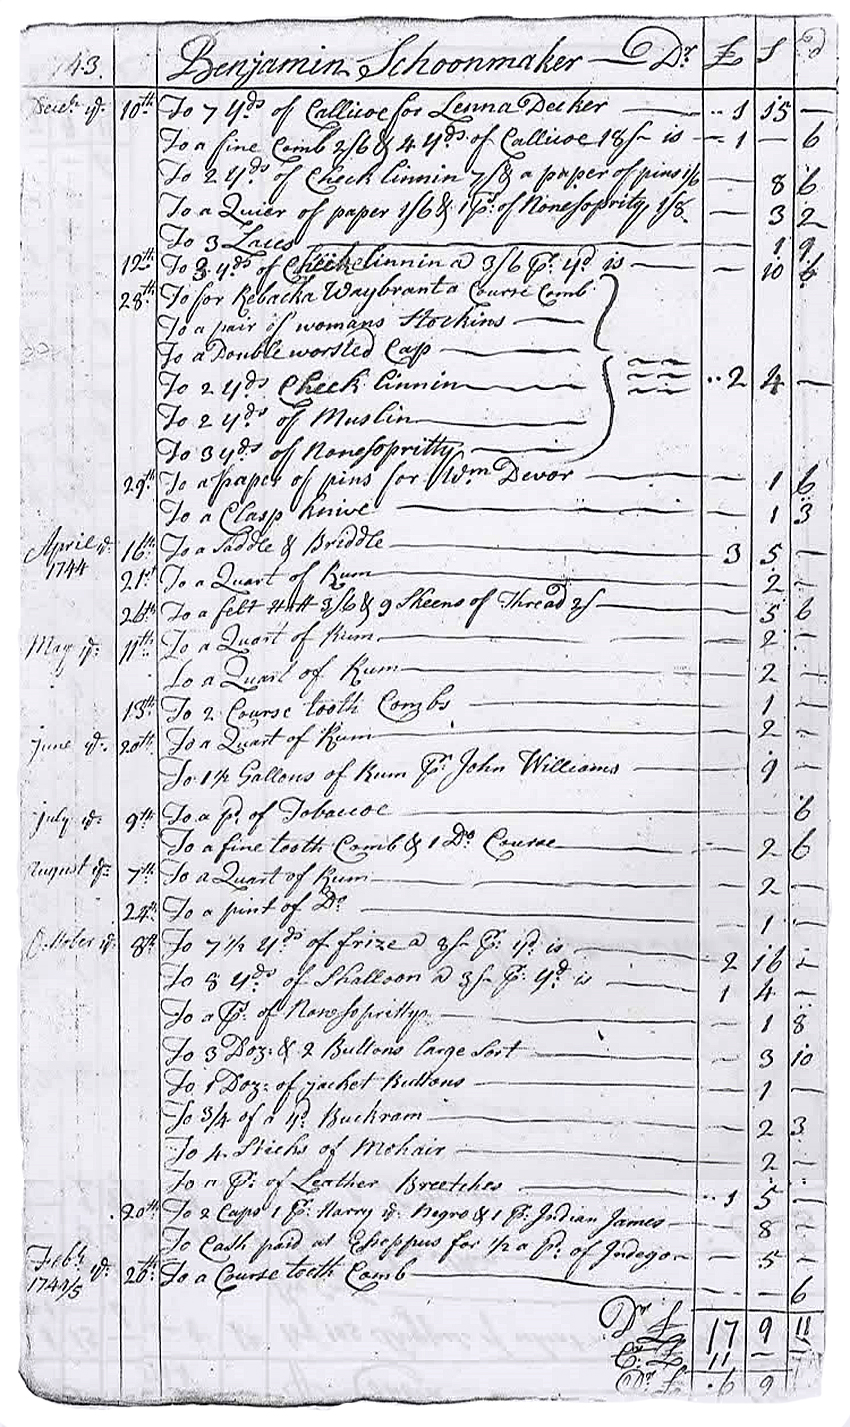 1743. Benjamin Schoonmaker Dr £ S d
Decebr ye 10th To 7 Yds of Callicoe for Lenna Decker 1 15 —
To a fine Comb 2/6 & 4 Yds of Callicoe 18/- is 1 — 6
To 2 Yds of Check linnin 7/ & a paper of pins 1/6 — 8 6
To a Quier of paper 1/6 & 1 Ps: of Nonesoprity 1/8 — 3 2
To 3 Laces — 1 9
12th To 3 yds of Check linnin a 3/6 Pr: Yd is — 10 6
28th To for Rebacka Waybrant a Course Comb
To a pair of womans Stockins
To a Double worsted Cap
To 2 Yds Check linnin 2 4 —
To 2 Yds of Muslin
To 3 Yds of Nonesopritty
29th To a paper of pins for Wm Devor — 1 6
To a Clasp knive — 1 3
April ye 16th To a Saddle & Briddle 3 5 —
1744
21st To a Quart of Rum 2 —
26th To a felt Hatt 3/6 & 9 Skeens of Thread 2/ 5 6
May ye 11th To a Quart of Rum — 2 —
To a Quart of Rum — 2 —
13th To 2 Course tooth Combs — 1 —
June ye 20th To a Quart of Rum — 2 —
To 1 1/2 Gallons of Rum Pr: John Williams — 9 —
July ye 9th To a Pd. of Tobaccoe — 6
To a fine tooth Comb & 1 Do Course — 2 6
August ye 7th To a Quart of Rum — 2 —
24th To a pint of Do — 1 —
October ye 8th To 7 1/2 Yds of frize a 8/- Pr: Yd. is 2 16 —
To 8 Yds of Shalloon a 3/- Pr: Yd. is 1 4 —
To a Ps: of Nonesopritty — 1 8
To 3 Doz: & 2 Buttons large Sort — 3 10
To 1 Doz: of jacket Buttons — 1 —
To 3/4 of a Yd Buckram — 2 3
To 4 Sticks of Mohair — 2 —
To a Pr: of Leather Breetches 1 5 —
20th To 2 Caps 1 Pr: Harry ye Negro & 1 Pr: Indian James — 8 —
To Cash paid at Esoppus for 1/2 a Pd. of Indegon — 5 —
Febr ye 20th To a Course tooth Comb — — 6
1744/5
Dr £ 17 9 11
Cr: £ 11 —
Dr. £ 6 9